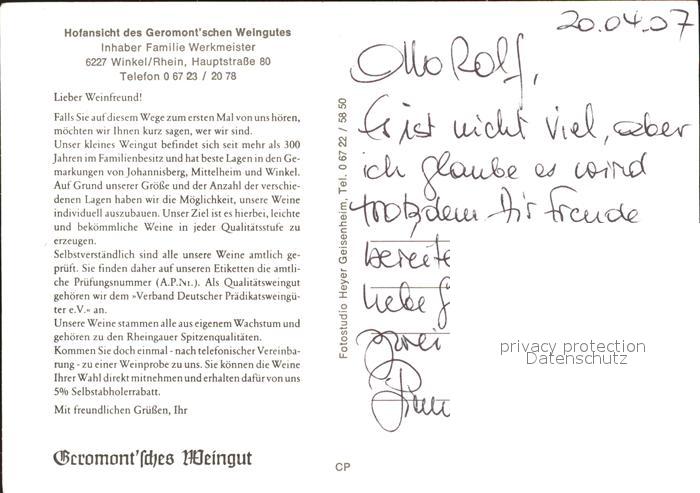 Hofansicht des Geromont'schen Weingutes
Inhaber Familie Werkmeister
6227 Winkel/Rhein, Hauptstraße 80
Telefon 0 67 23 / 20 78
Lieber Weinfreund!
Falls Sie auf diesem Wege zum ersten Mal von uns hören,
möchten wir Ihnen kurz sagen, wer wir sind.
Unser kleines Weingut befindet sich seit mehr als 300
Jahren im Familienbesitz und hat beste Lagen in den Ge-
markungen von Johannisberg, Mittelheim und Winkel.
Auf Grund unserer Größe und der Anzahl der verschie-
denen Lagen haben wir die Möglichkeit, unsere Weine
individuell auszubauen. Unser Ziel ist es hierbei, leichte
und bekömmliche Weine in jeder Qualitätsstufe zu
erzeugen.
Selbstverständlich sind alle unsere Weine amtlich ge-
prüft. Sie finden daher auf unseren Etiketten die amtli-
che Prüfungsnummer (A.P.Nr.). Als Qualitätsweingut
gehören wir dem »Verband Deutscher Prädikatsweingü-
ter e.V.« an.
Unsere Weine stammen alle aus eigenem Wachstum und
gehören zu den Rheingauer Spitzenqualitäten.
Kommen Sie doch einmal - nach telefonischer Vereinba-
rung - zu einer Weinprobe zu uns. Sie können die Weine
Ihrer Wahl direkt mitnehmen und erhalten dafür von uns
5% Selbstabholerrabatt.
Mit freundlichen Grüßen, Ihr
Geromont'sches Weingut
Fotostudio Heyer Geisenheim, Tel. 0 67 22 / 58 50
CP
20.04.07
Otto Rolf,
Es ist nicht viel, aber
ich glaube es wird
trotzdem Dir Freude
bereite
liebe G
zwei
privacy protection
Datenschutz